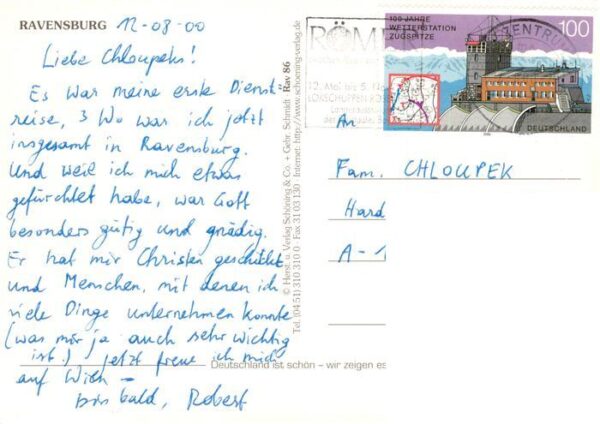 RAVENSBURG 12-08-00
Liebe Chloupeks!
Es war meine erste Dienst-
reise, 3 Wo war ich jetzt
insgesamt in Ravensburg.
Und weil ich mich etwas
gefürchtet habe, war Gott
besonders gütig und gnädig.
Er hat mir Christen geschickt
und Menschen, mit denen ich
viele Dinge unternehmen konnte
(was mir ja auch sehr wichtig
ist.) Jetzt freue ich mich
auf Wien –
bis bald, Robert
Deutschland ist schön – wir zeigen es
© Herst. u. Verlag Schöning & Co. + Gebr. Schmidt Rav 86
Tel. (04 51) 310 310 0 · Fax 31 03 130 · Internet: http://www.schoening-verlag.de
RÖM
12. Mai bis 5. No
LOKSCHUPPEN ROSE
ZENTRU
100 JAHRE
WETTERSTATION
ZUGSPITZE
100
DEUTSCHLAND
An
Fam. CHLOUPEK
Hard
A-1